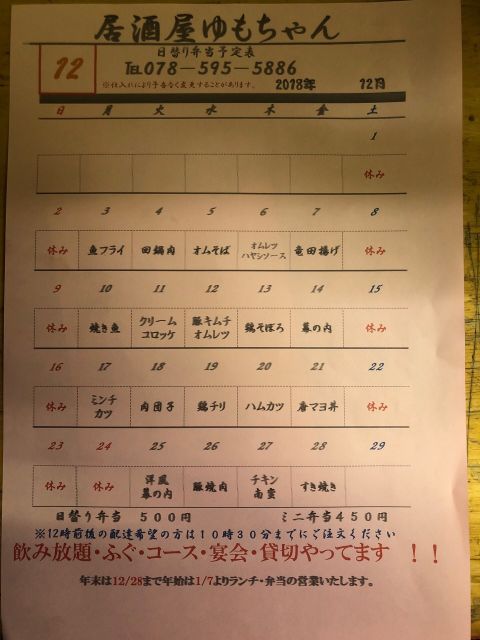 居酒屋ゆもちゃん
日替り弁当予定表
12
TEL078-595-5886
※仕入れにより予告なく変更することがあります。
2018年 12月
日 月 火 水 木 金 土
1
休み
2 3 4 5 6 7 8
休み 魚フライ 回鍋肉 オムそば オムレツ ハヤシソース 竜田揚げ 休み
9 10 11 12 13 14 15
休み 焼き魚 クリーム コロッケ 豚キムチ オムレツ 鶏そぼろ 幕の内 休み
16 17 18 19 20 21 22
休み ミンチ カツ 肉団子 鶏チリ ハムカツ 唐マヨ丼 休み
23 24 25 26 27 28 29
休み 休み 洋風 幕の内 豚焼肉 チキン 南蛮 すき焼き
日替り弁当 500円 ミニ弁当450円
※12時前後の配達希望の方は10時30分までにご注文ください
飲み放題・ふぐ・コース・宴会・貸切やってます ！！
年末は12/28まで年始は1/7よりランチ・弁当の営業いたします。